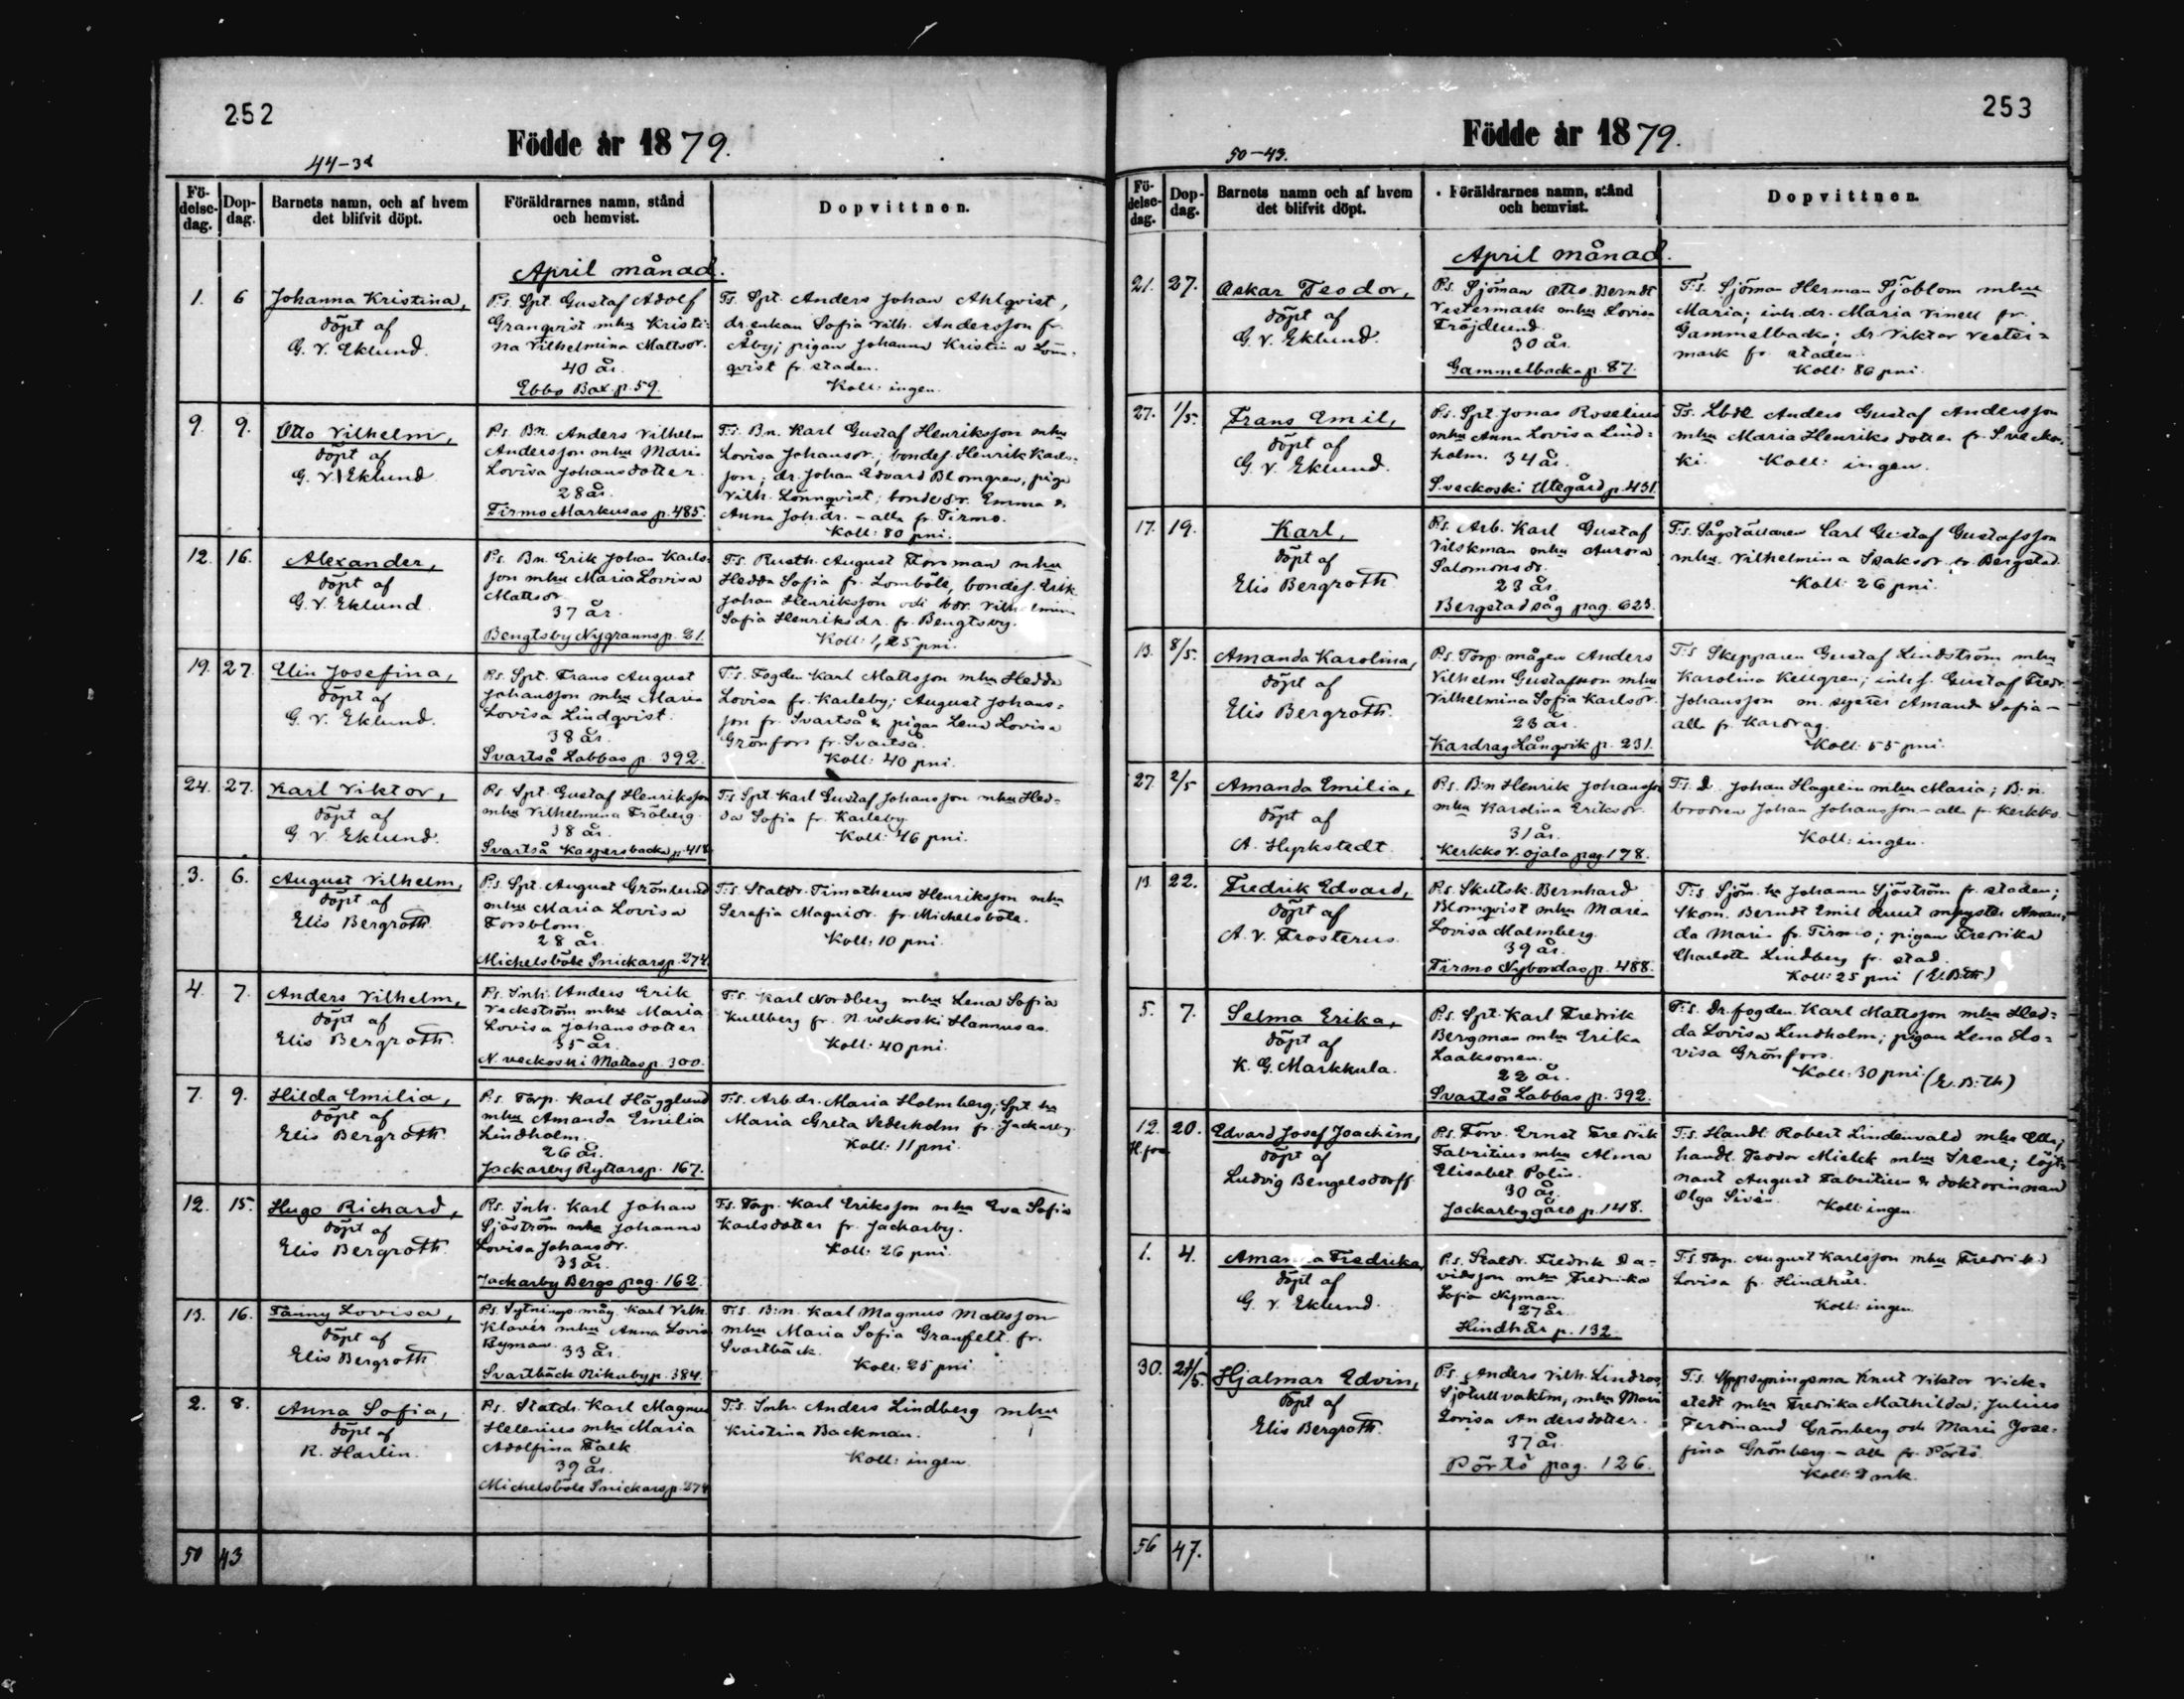 252
Födde år 1879.
44-38
Fö-
delse-
dag.
Dop-
dag.
Barnets namn, och af hvem
det blifvit döpt.
Föräldrarnes namn, stånd
och hemvist.
Dopvittnen.
April månad.
1.
6
Johanna Kristina,
döpt af
G. V. Eklund.
Ps. Spt. Gustaf Adolf
Granqvist mhu Kristi-
na Vilhelmina Mattsdr.
40 år.
Ebbo Box p. 59.
Ts. Spt. Anders Johan Ahlqvist,
dr. enkan Sofia Vilh. Andersson fr.
Åby; pigan Johanna Kristina Lönn-
qvist fr. staden.
Koll: ingen.
9.
9.
Otto Vilhelm,
döpt af
G. V. Eklund
Ps. Bn. Anders Vilhelm
Andersson mhu Maria
Lovisa Johansdotter
28 år.
Tirmo Markusas p. 485.
T:s. Bn. Karl Gustaf Henriksson mhu
Lovisa Johansdr.; bondes. Henrik Karls-
son; dr. Johan Edvard Blomgren, piga
Vilh. Lönnqvist; bondedr. Emma &
Anna Joh.dr. – alla fr. Tirmo.
Koll: 80 pni.
12.
16.
Alexander,
döpt af
G. V. Eklund
Ps. Bn. Erik Johan Karls-
son mhu Maria Lovisa
Mattsdr.
37 år.
Bengtsby Nygranns p. 21.
T.s. Rusth. August Forsman mhu
Hedda Sofia fr. Lomböle, bondes. Erik
Johan Henriksson och bdr. Vilhelmina
Sofia Henriksdr. fr. Bengtsby.
Koll: 1,25 pni.
19.
27.
Elin Josefina,
döpt af
G. V. Eklund.
Ps. Spt. Frans August
Johansson mhu Maria
Lovisa Lindqvist.
38 år.
Svartså Labbas p. 392.
T.s. Fogden Karl Mattsson mhu Hedda
Lovisa fr. Karleby; August Johans-
son fr. Svartså & pigan Lena Lovisa
Grönfors fr. Svartså.
Koll: 40 pni.
24.
27.
Karl Viktor,
döpt af
G. V. Eklund.
Ps. Spt. Gustaf Henriksson
mhu Vilhelmina Fröberg.
38 år.
Svartså Kaspersbacka p. 418
T:s Spt. Karl Gustaf Johansson mhu Hed-
da Sofia fr. Karleby
Koll: 46 pni.
3.
6.
August Vilhelm,
döpt af
Elis Bergroth.
Ps. Spt. August Grönlund
mhu Maria Lovisa
Forsblom.
28 år.
Michelsböle Snickars p. 274
T:s. Statdr. Timotheus Henriksson mhu
Serafia Magnidr. fr. Michelsböle.
Koll: 10 pni.
4.
7.
Anders Vilhelm,
döpt af
Elis Bergroth.
Ps. Inh. Anders Erik
Veckström mhu Maria
Lovisa Johansdotter
35 år.
N. veckoski Mattas p. 300.
T:s. Karl Nordberg mhu Lena Sofia
Kullberg fr. N. veckoski Hannusas.
Koll: 40 pni.
7.
9.
Hilda Emilia,
döpt af
Elis Bergroth.
Ps. Torp. Karl Hägglund
mhu Amanda Emilia
Lindholm.
26 år.
Jackarby Ryttars p. 167.
T:s. Arb. dr. Maria Holmberg; Spt. hu
Maria Greta Sederholm fr. Jackarby
Koll: 11 pni.
12.
15.
Hugo Richard,
döpt af
Elis Bergroth.
Ps. Inh. Karl Johan
Sjöström mhu Johanna
Lovisa Johansdr.
33 år.
Jackarby Bergs pag. 162.
T:s. Torp. Karl Eriksson mhu Eva Sofia
Karlsdotter fr. Jackarby.
Koll: 26 pni.
13.
16.
Fanny Lovisa,
döpt af
Elis Bergroth.
Ps. Sytnings-måg Karl Vilh.
Klavér mhu Anna Lovisa
Byman.
33 år.
Svartbäck Rikuby p. 384.
T:s. B:n. Karl Magnus Mattsson
mhu Maria Sofia Granfelt fr.
Svartbäck.
Koll: 25 pni
2.
8.
Anna Sofia,
döpt af
R. Harlin.
Ps. Statdr. Karl Magnus
Helenius mhu Maria
Adolfina Falk
39 år.
Michelsböle Snickars p. 274
T:s. Inh. Anders Lindberg mhu
Kristina Backman.
Koll: ingen
50
43
253
Födde år 1879.
50-43.
Fö-
delse-
dag.
Dop-
dag.
Barnets namn och af hvem
det blifvit döpt.
Föräldrarnes namn, stånd
och hemvist.
Dopvittnen.
April månad.
21.
27.
Oskar Teodor,
döpt af
G. V. Eklund.
Ps. Sjöman Otto Berndt
Vestermark mhu Lovisa
Fröjdlund.
30 år.
Gammelbacka p. 87.
T:s. Sjöman Herman Sjöblom mhu
Maria; inh. dr. Maria Vinell fr.
Gammelbacka; dr. Viktor Vester-
mark fr. staden.
Koll: 86 pni.
27.
1/5.
Frans Emil,
döpt af
G. V. Eklund.
Ps. Spt. Jonas Roselius
mhu Anna Lovisa Lind-
holm. 34 år.
S. veckoski Utegård p. 431.
Ts. Lbde Anders Gustaf Andersson
mhu Maria Henriksdotter fr. S. vecko-
ki. Koll: ingen.
17.
19.
Karl,
döpt af
Elis Bergroth.
Ps. Arb. Karl Gustaf
Vilskman mhu Aurora
Salomonsdr.
23 år.
Bergstad såg pag. 623.
T:s. Sågställaren Carl Gustaf Gustafsson
mhu Vilhelmina Isaksdr. fr. Bergstad.
Koll: 26 pni.
13.
8/5.
Amanda Karolina,
döpt af
Elis Bergroth.
Ps. Torp. mågen Anders
Vilhelm Gustafsson mhu
Vilhelmina Sofia Karlsdr.
23 år.
Kardrag Långvik p. 231.
T:s Skepparen Gustaf Lindström mhu
Karolina Kellgren; inh. s. Gustaf Fredr.
Johansson m. syster Amanda Sofia –
alla fr. Kardrag.
Koll: 55 pni.
27.
2/5
Amanda Emilia,
döpt af
A. Hyrkstedt.
Ps. B:n Henrik Johansson
mhu Karolina Eriksdr.
31 år.
Kerkko V. ojala pag. 178.
T:s. D. Johan Hagelin mhu Maria; B:n.
brodren Johan Johansson – alla fr. Kerkko.
Koll: ingen.
13.
22.
Fredrik Edvard,
döpt af
A. V. Frosterus.
Ps. Skeltsk. Bernhard
Blomqvist mhu Maria
Lovisa Malmberg.
39 år.
Tirmo Nybondas p. 488.
T:s. Sjöm. hu Johanna Sjöström fr. staden;
skom. Berndt Emil Ruut m syster Aman-
da Maria fr. Tirmo; pigan Fredrika
Charlotta Lindberg fr. stad.
Koll: 25 pni (E. B:th)
5.
7.
Selma Erika,
döpt af
K. G. Markkula.
Ps. Spt. Karl Fredrik
Bergman mhu Erika
Laaksonen.
22 år.
Svartså Labbas p. 392.
T:s. Dr. fogden Karl Mattsson mhu Hed-
da Lovisa Lindholm; pigan Lena Lo-
visa Grönfors.
Koll: 30 pni. (E. B:th)
12.
20.
Edvard Josef Joachim,
döpt af
Ludvig Bengelsdorff.
Ps. Forv. Ernst Fredrik
Fabritius mhu Alma
Elisabet Polin.
30 år.
Jackarby gård p. 148.
T:s. Handl. Robert Lindenvald mhu Elli;
handl. Teodor Mielck mhu Irene; löjt-
nant August Fabritius & doktorinnan
Olga Sivén. Koll: ingen
1.
4.
Amanda Fredrika,
döpt af
G. V. Eklund.
Ps. Statdr. Fredrik Da-
vidsson mhu Fredrika
Sofia Nyman.
27 år.
Hindhår p. 132.
T:s. Torp. August Karlsson mhu Fredrika
Lovisa fr. Hindhår.
Koll: ingen
30.
24/5.
Hjalmar Edvin,
döpt af
Elis Bergroth.
Ps. Anders Vilh. Lindros,
Sjötullvaktm, mhu Maria
Lovisa Andersdotter.
37 år.
Pörtö pag. 126.
T:s. Uppsyningsma Knut Viktor Vick-
stedt mhu Fredrika Mathilda; Julius
Ferdinand Grönberg och Maria Jose-
fina Grönberg – alla fr. Pörtö.
Koll: 2 mk.
56
47.